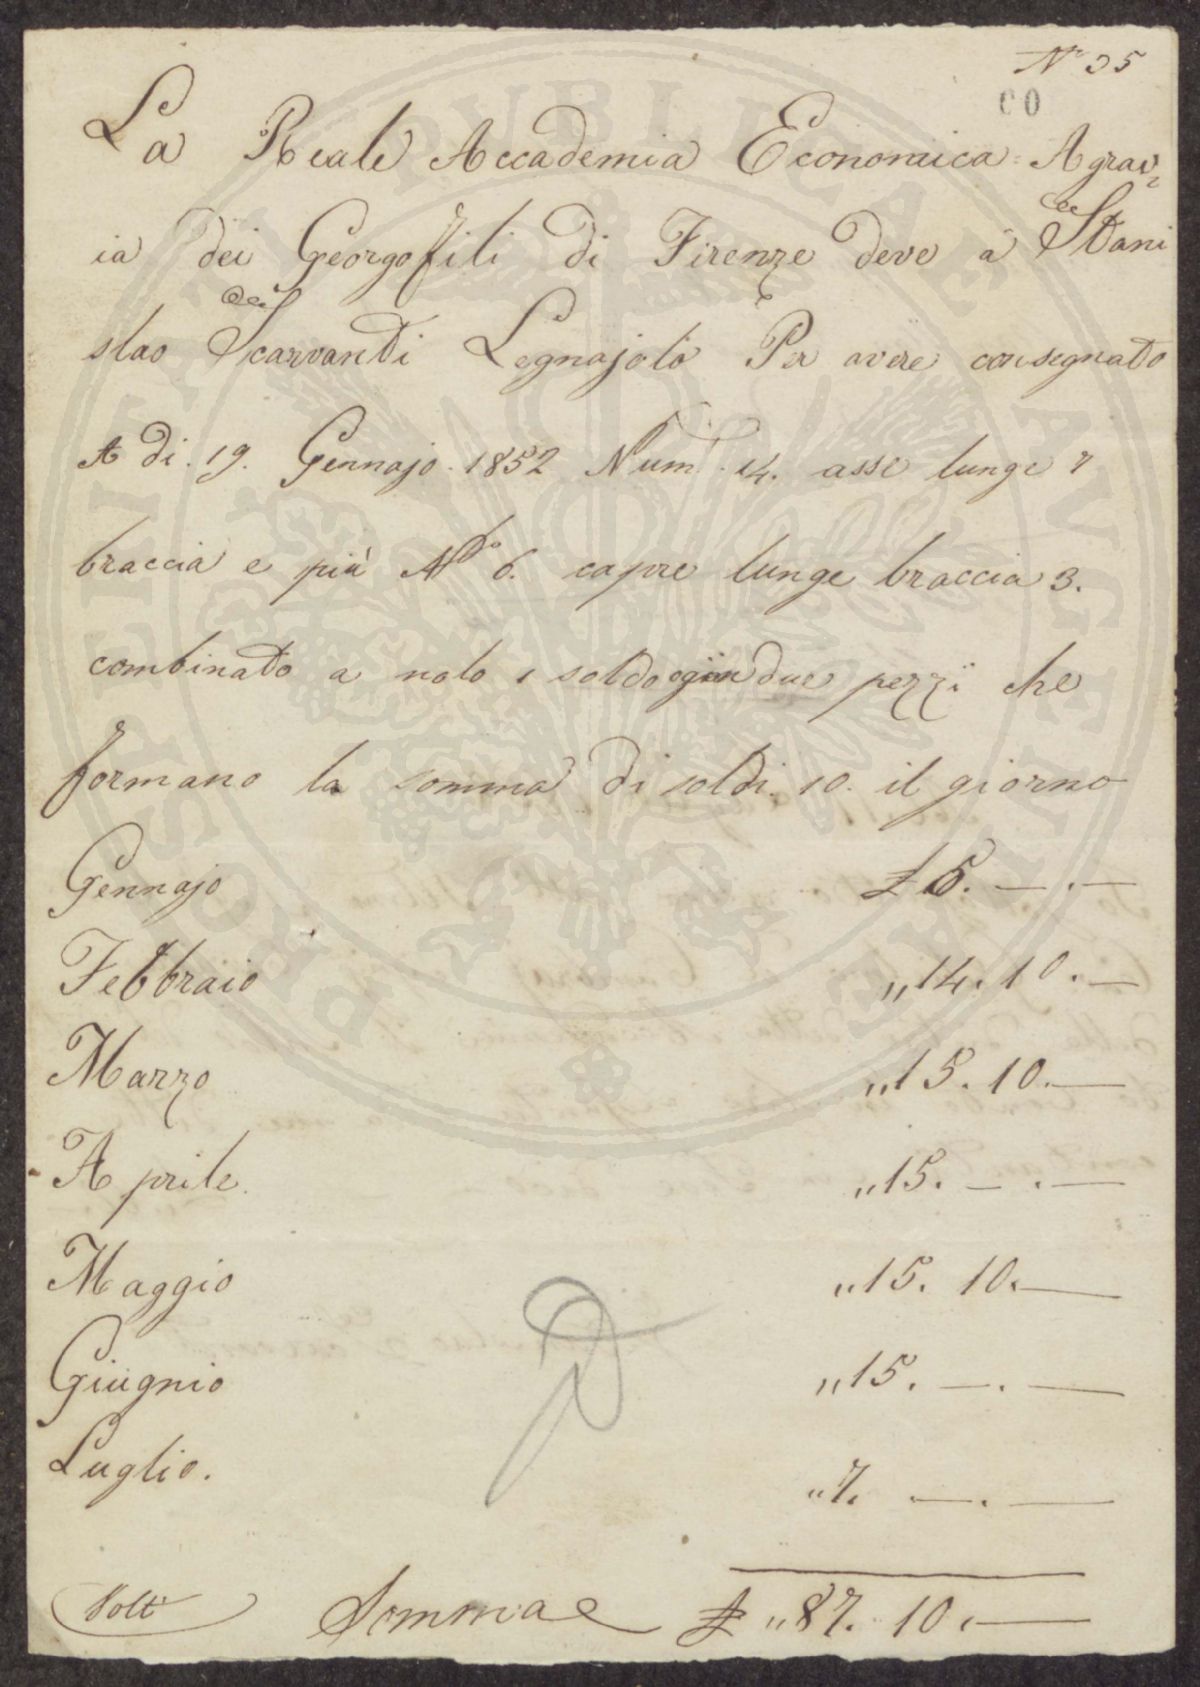 N° 35
60
La Reale Accademia Economica Agrar=
ia dei Georgofili di Firenze deve a Stani
slao Scarvanti Legnajolo Per avere consegnato
A di. 19. Gennajo. 1852 Num. 14. asse lunge 7
braccia e più N° 6. capre lunge braccia 3.
combinato a nolo 1 soldo ogni due pezzi che
formano la somma di soldi. 10. il giorno
Gennajo £ 5. — . —
Febbraio „14. 10. —
Marzo „15. 10. —
Aprile. „15. — . —
Maggio „15. 10. —
Giugnio „15. — . —
Luglio. „7. — . —
Volti Sommae £ „87. 10. —
PROSPERITATI PUBLICAE AUGENDAE